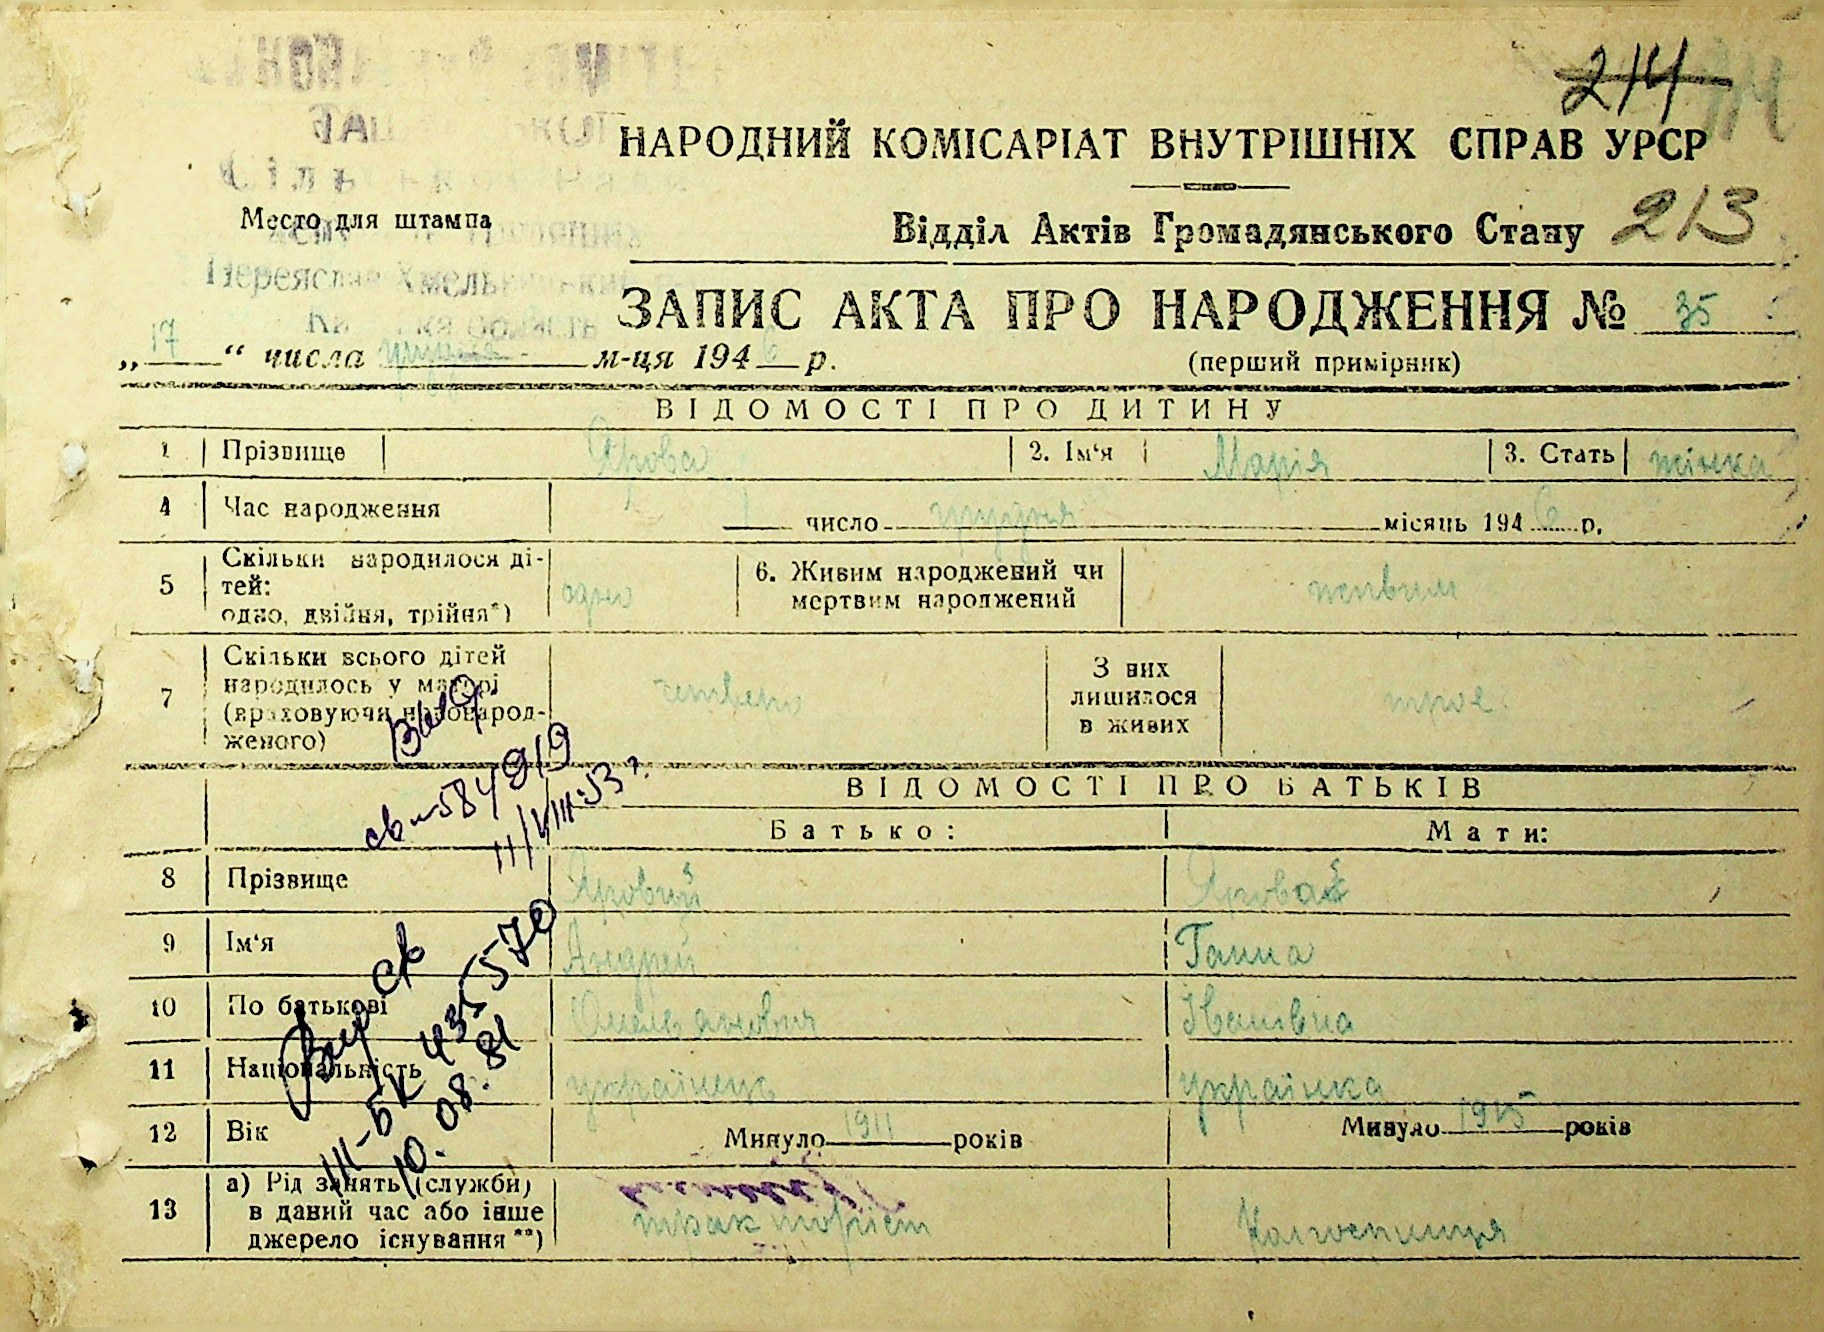 214
НАРОДНИЙ КОМІСАРІАТ ВНУТРІШНІХ СПРАВ УРСР
Место для штампа
Відділ Актів Громадянського Стану 213
ЗАПИС АКТА ПРО НАРОДЖЕННЯ № 35
„ 17 “ числа грудня м-ця 194 6 р.
(перший примірник)
ВІДОМОСТІ ПРО ДИТИНУ
1 Прізвище Ярова 2. Ім'я Марія 3. Стать жінка
4 Час народження 1 число грудня місяць 194 6 р.
5 Скільки народилося ді-
тей:
одно, двійня, трійня*) одно 6. Живим народжений чи
мертвим народжений живим
7 Скільки всього дітей
народилось у матері
(враховуючи новонарод-
женого) четверо З них
лишилося
в живих троє
ВІДОМОСТІ ПРО БАТЬКІВ
Батько: Мати:
8 Прізвище Яровий Ярова
9 Ім'я Андрей Ганна
10 По батькові Омелянович Іванівна
11 Національність українець українка
12 Вік Минуло 1911 років Минуло 1915 років
13 а) Рід занять (служби)
в даний час або інше
джерело існування**) тракторіст Колгоспниця
Выд.
св-584919
11/VIII-53 г.
св
III-БК 435570
10.08.81